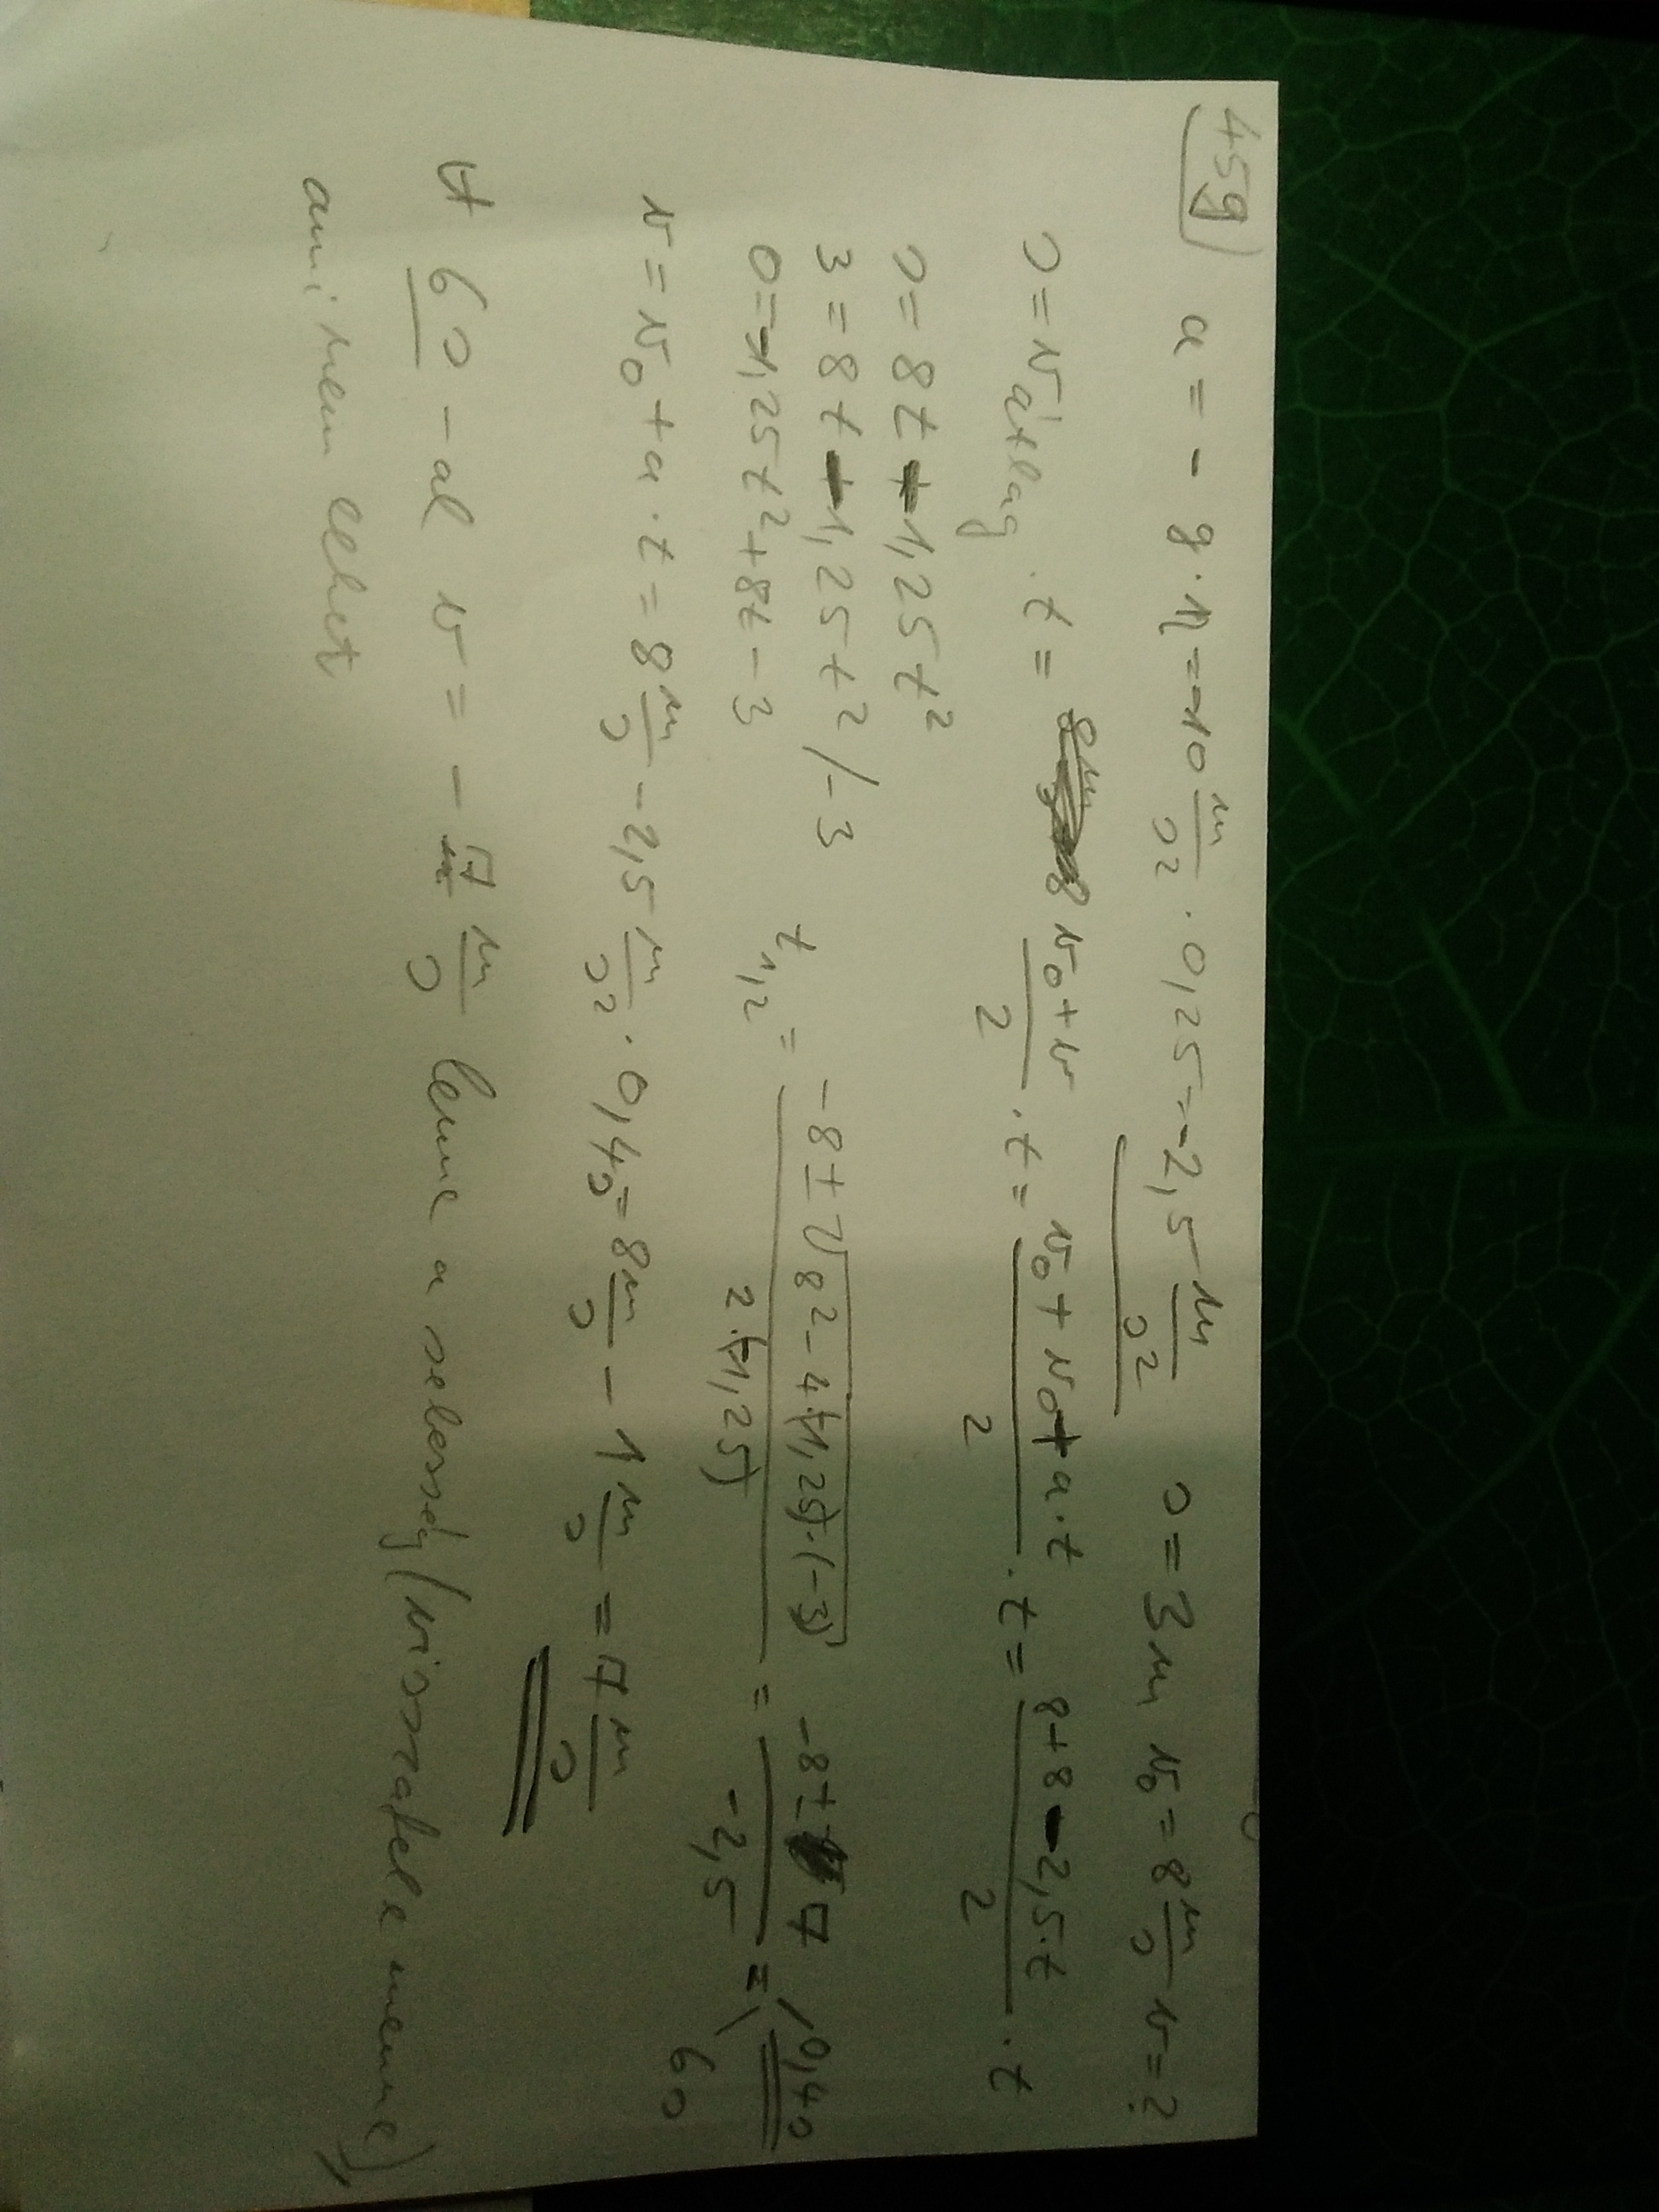 459) a = - g · η = -10 m/s² · 0,25 = -2,5 m/s² s = 3m v₀ = 8 m/s v = ?
s = v átlag · t = (v₀ + v)/2 · t = (v₀ + v₀ + a · t)/2 · t = (8 + 8 - 2,5 · t)/2 · t
s = 8t - 1,25t²
3 = 8t - 1,25t² /-3
0 = -1,25t² + 8t - 3 t₁,₂ = (-8 ± √(8² - 4·(-1,25)·(-3)))/(2·(-1,25)) = (-8 ± 7)/(-2,5) = 0,4s
6s
v = v₀ + a · t = 8 m/s - 2,5 m/s² · 0,4s = 8 m/s - 1 m/s = 7 m/s
A 6s - al v = - 7 m/s lenne a sebesség (visszafele menne),
ami nem lehet